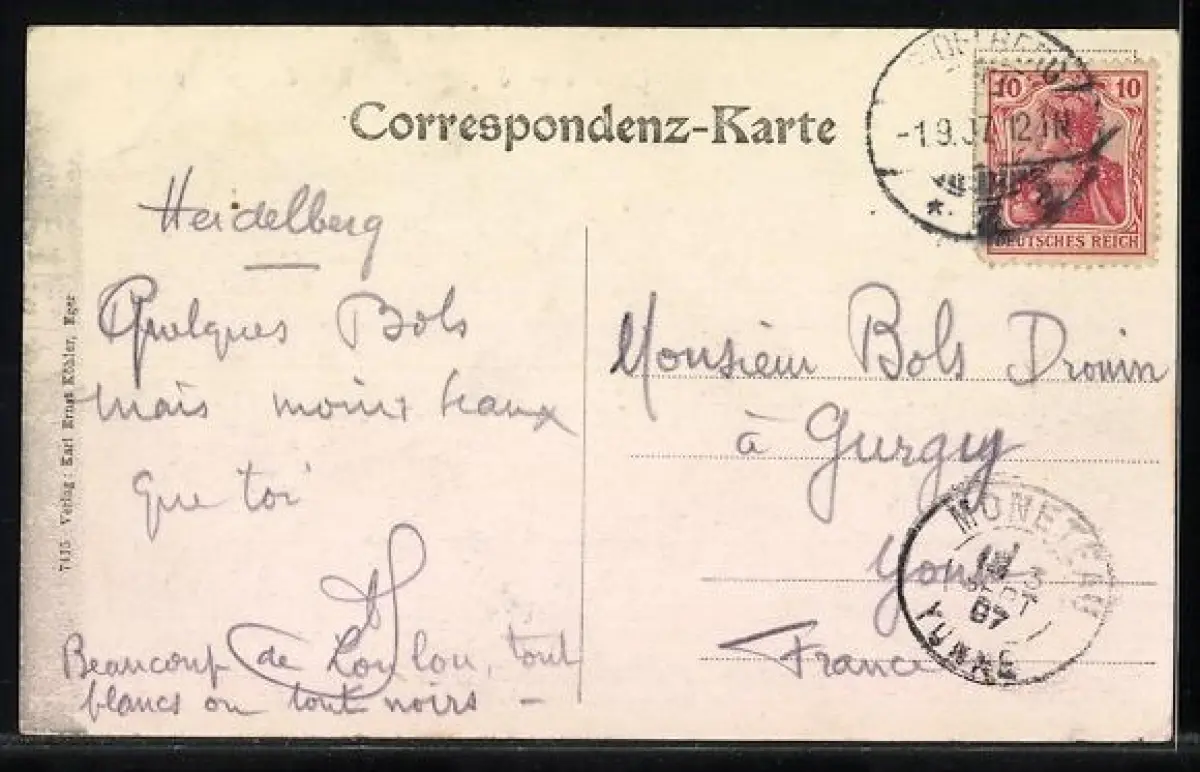 Correspondenz-Karte
-1.9.07.12-1N
10 10
DEUTSCHES REICH
Heidelberg
Quelques Bols
mais moins beaux
que toi
Beaucoup de Loulou, tout
blancs ou tout noirs -
Monsieur Bols Drouin
à Gurgy
Yonne
France
MONETEAU
3
SEPT
07
YONNE
7415 Verlag: Karl Ernst Köhler, Eger